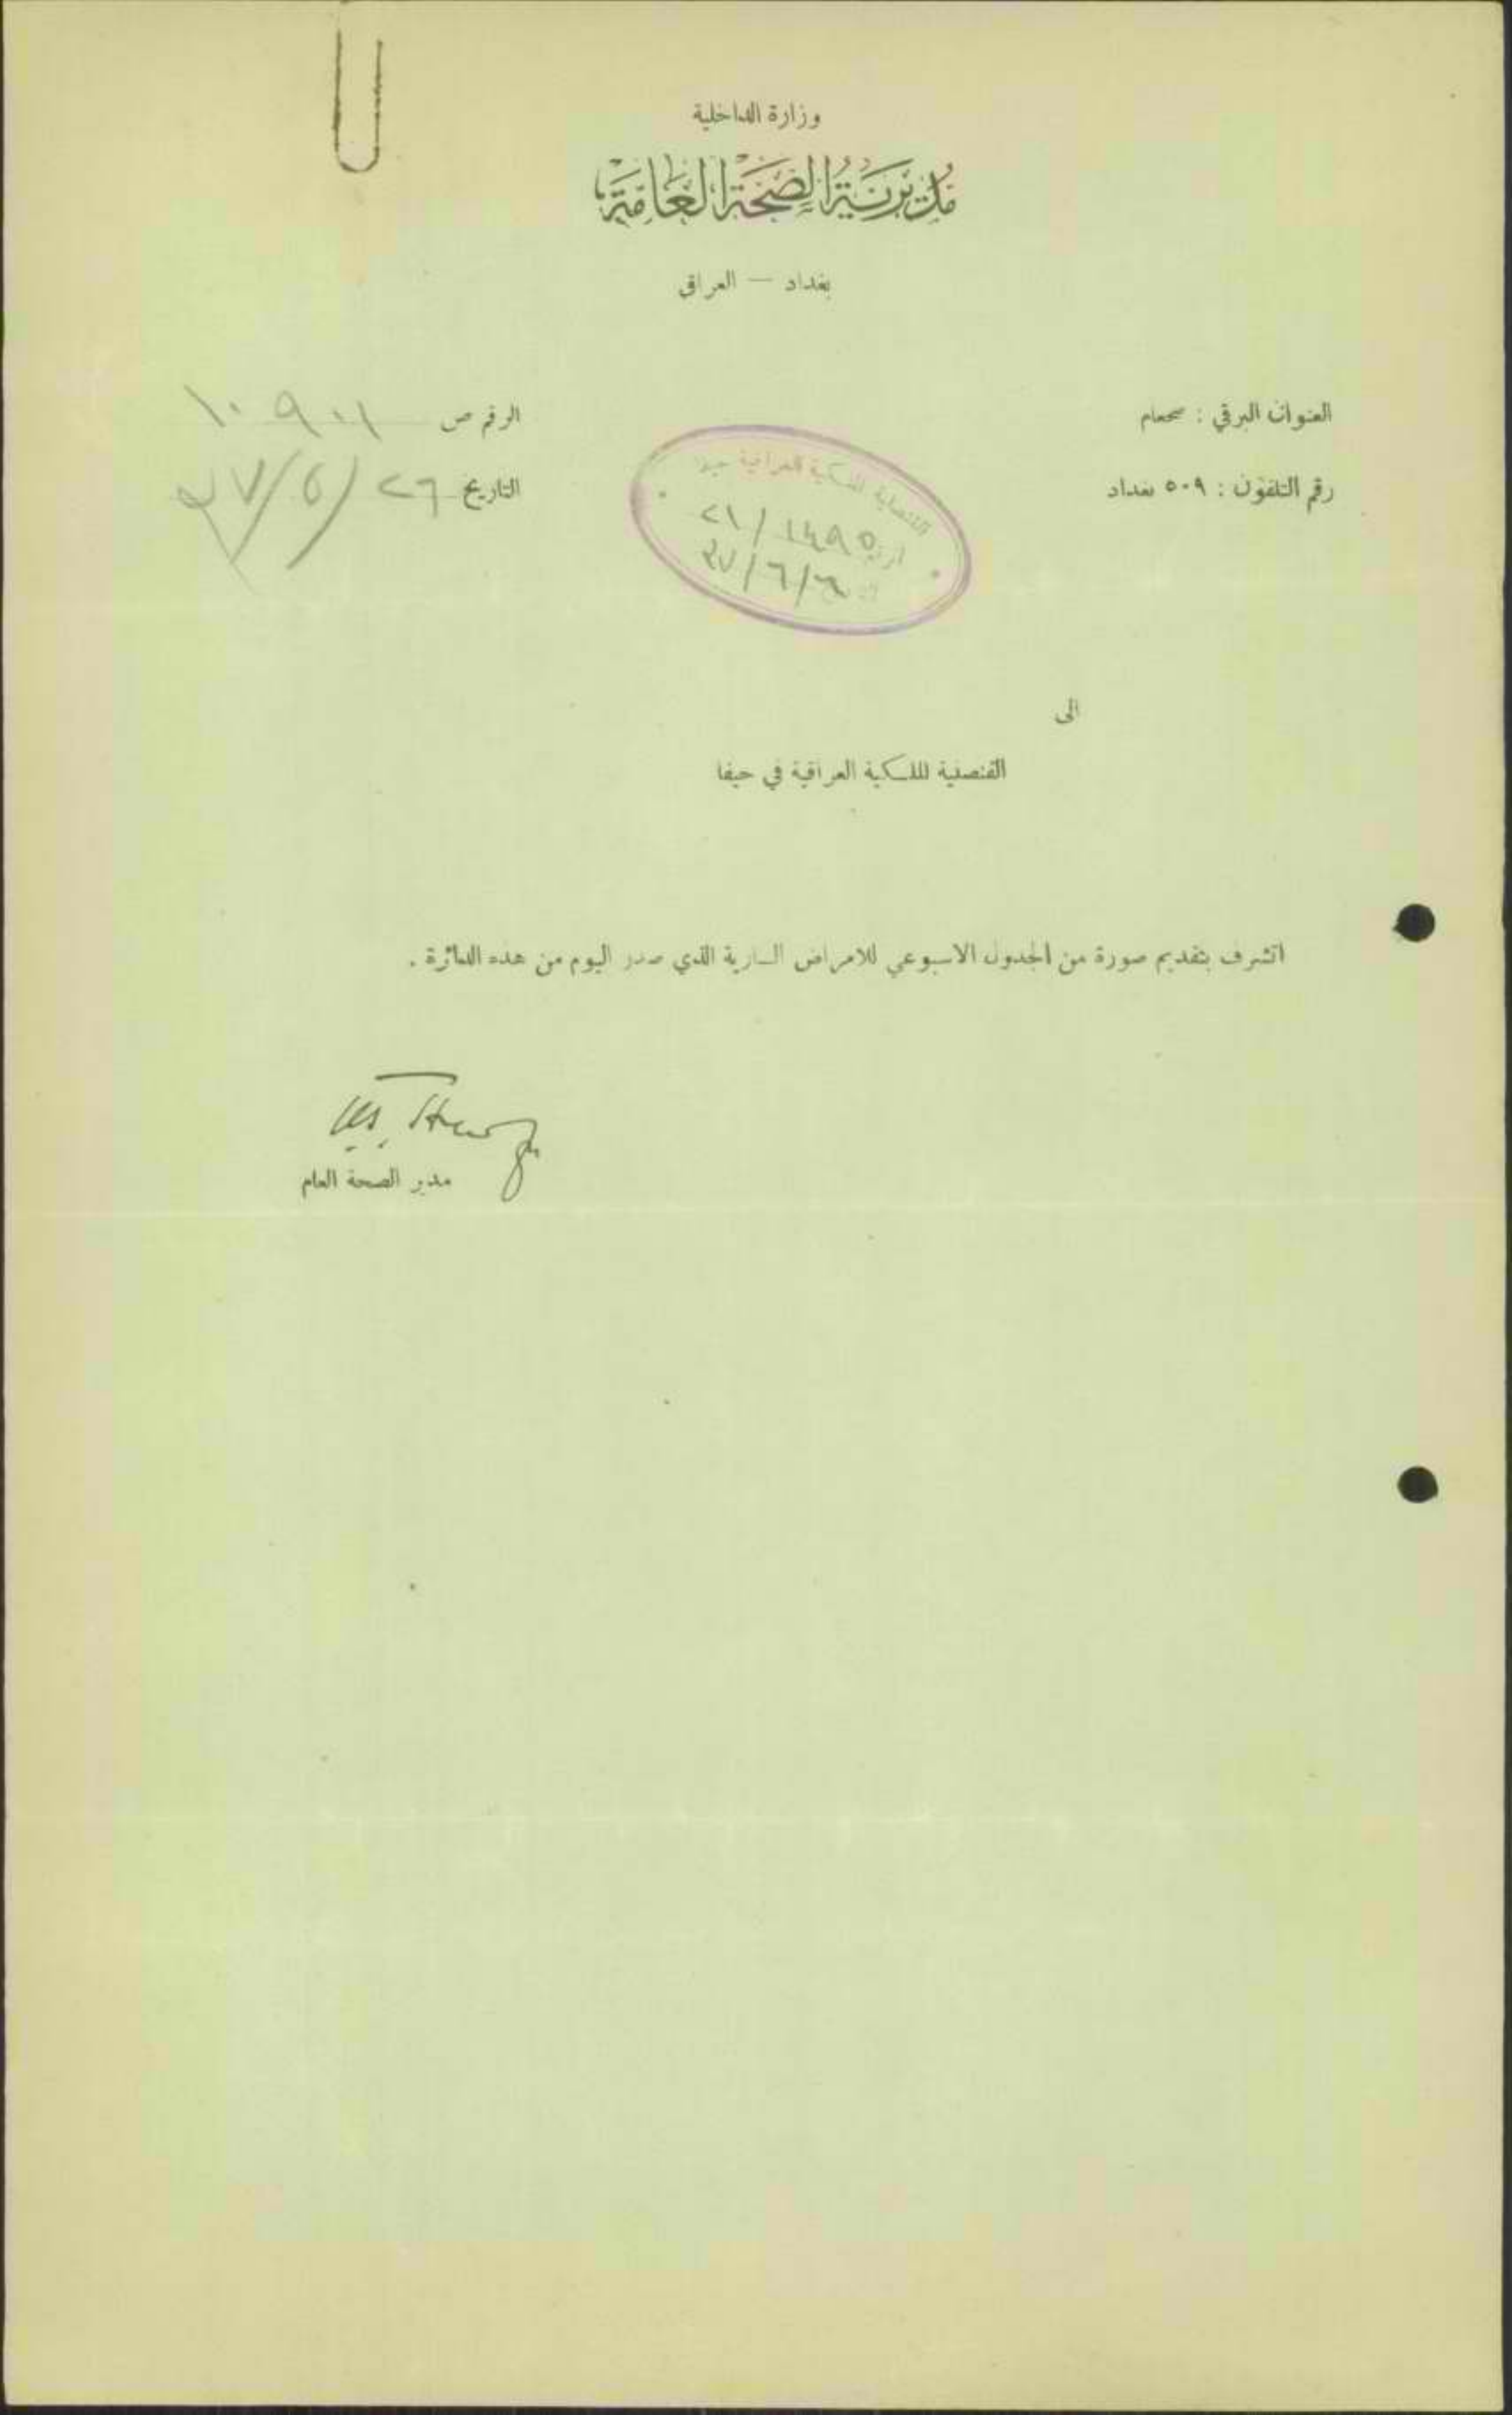 وزارة الداخلية
مديرية الصحة العامة
بغداد — العراق
العنوان البرقي : صحعام
الرقم ص ١٠٩٠١
رقم التلفون : ٥٠٩ بغداد
التاريخ ٢٦/٥/٣٧
القنصلية الملكية العراقية حيفا
٢١/١٤٩٥
٣٧/٦/٢
الى
القنصلية الملكية العراقية في حيفا
اتشرف بتقديم صورة من الجدول الاسبوعي للامراض السارية الذي صدر اليوم من هذه الدائرة .
مدير الصحة العام